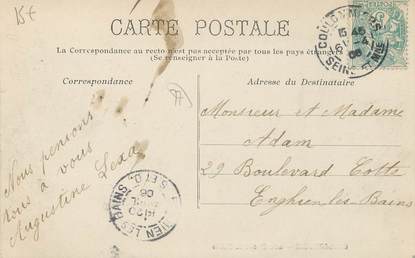 15€
CARTE POSTALE
La Correspondance au recto n'est pas acceptée par tous les pays étrangers
(Se renseigner à la Poste)
Correspondance
Adresse du Destinataire
COULOMMIERS
15 45
6 4
06
SEINE ET MNE
Monsieur et Madame
Adam
29 Boulevard Cotte
Enghien-les-Bains
Nous pensions
tous à vous
Augustine
LES BAINS
S. ET O.
06